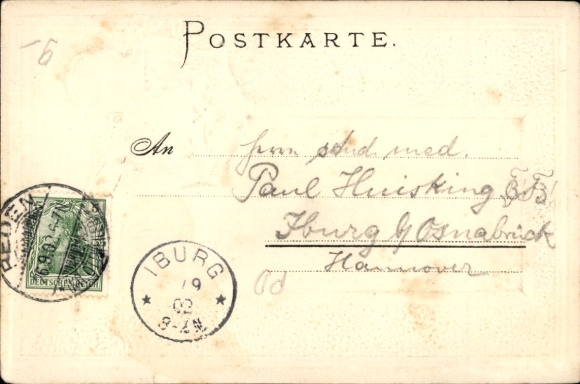 -6
POSTKARTE.
An
Herrn stud. med.
Paul Huisking
Iburg b/Osnabrück
Hannover
DEUTSCHES REICH
IBURG
* 9 *